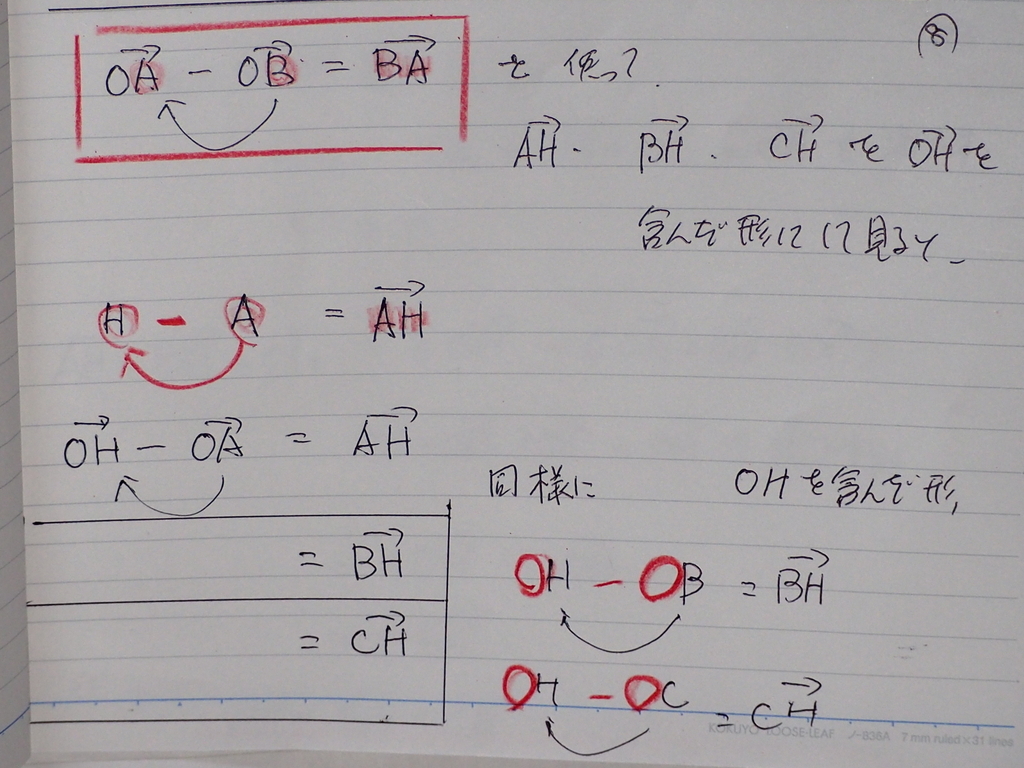 ⑧
OA→ - OB→ = BA→ を使って
AH→. BH→. CH→ を OH→を
含んだ形にして見ると
H - A = AH→
OH→ - OA→ = AH→
= BH→
= CH→
同様に OHを含んだ形,
OH - OB = BH→
OH - OC = CH→
KOKUYO LOOSE-LEAF ノ-836A 7 mm ruled×31 lines